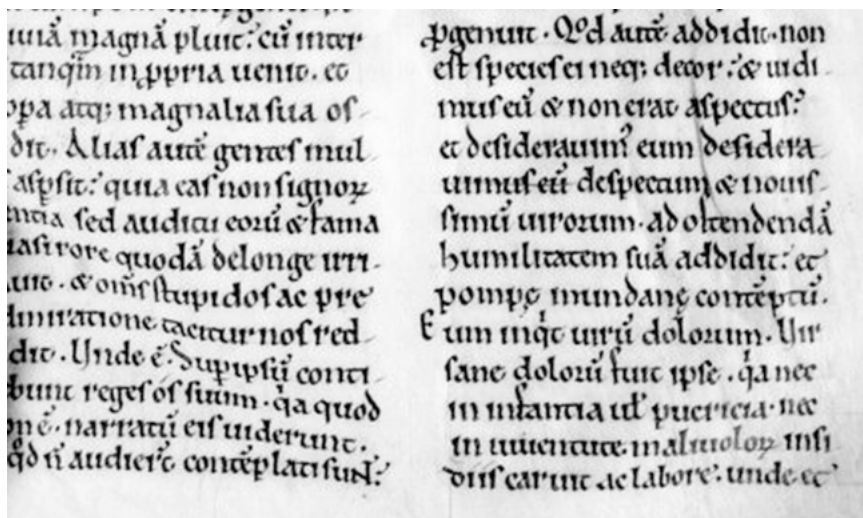 uiā magnā pluit: cū inter
tanq̄m in ꝓpria uenit. et
opa atq; magnalia sua of
dit. Alias autē gentes mul
aspsit: quia eas non signoꝝ
entia sed auditu eorū & fama
asi rore quodā de longe irri
uit. & om̄s stupidos ac pre
dmiratione taciturnos red
dit. Unde ē. Sup ipsū conti
bunt reges os suum. q̇a quod
on ē narratū eis uiderunt.
q̇d n̄ audiert̄ contēplati sunt:
ꝓgenuit. Qd autē addidit. non
est species ei neq; decor: & uidi
mus eū & non erat aspectus:
et desiderauim᷒ eum desidera
uimus eū despectum & nouis
simū uirorum. ad ostendendā
humilitatem suā addidit: et
pompę mundanę contēptū.
Eum inq̇t uirū dolorum. Uir
sane dolorū fuit ipse. q̇a nec
in infantia ul̄ puericia. nec
in iuuentute. maliuoloꝝ insi
diis caruit ac labore. unde et